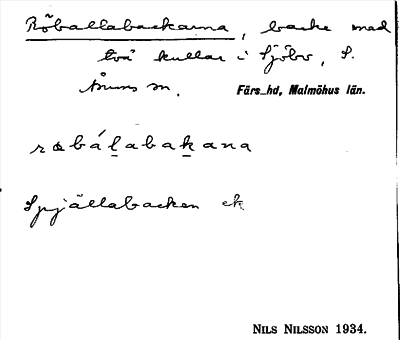 Röballabackarna, backe med
två kullar i Sjöbo, S.
Åsums sn. Färs hd, Malmöhus län.
rɵbálabakana
Spjällabacken ek
NILS NILSSON 1934.